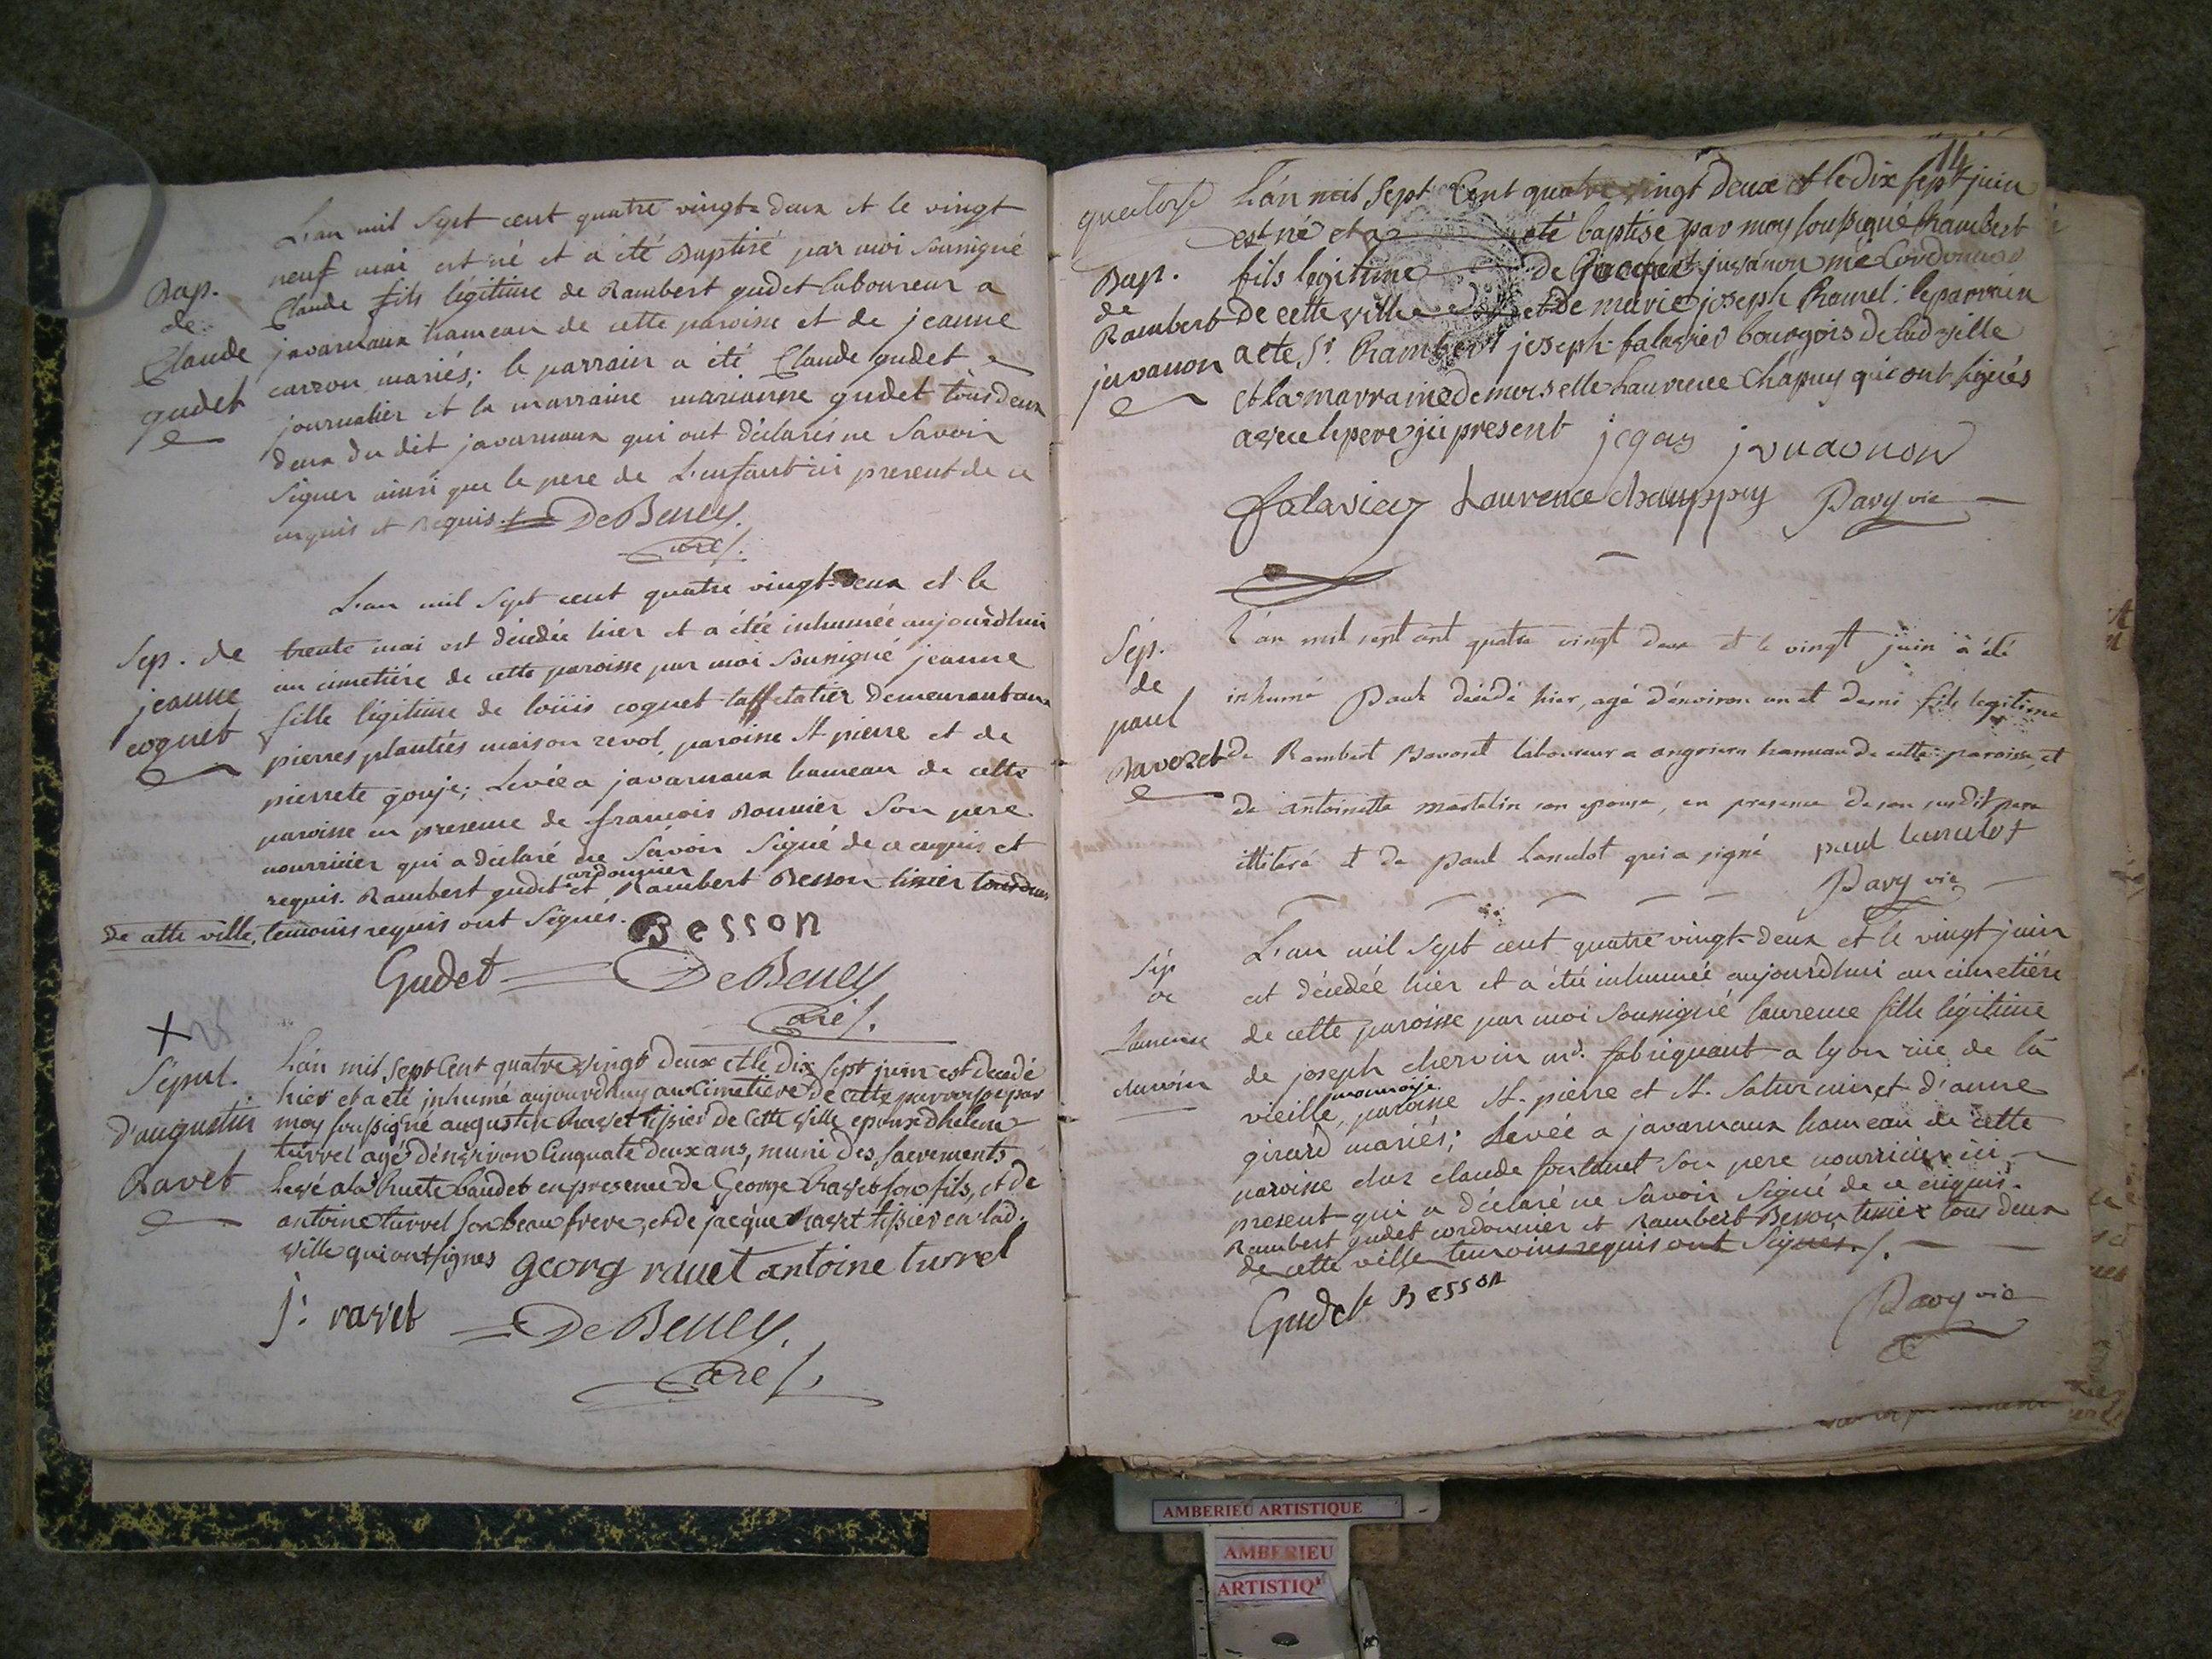 L'an mil sept cent quatre vingt-deux et le vingt
Bap. neuf mai est né et a été Baptisé par moi soussigné
de Claude fils légitime de Rambert gudet laboureur a
Claude javarnaux hameau de cette paroisse et de jeanne
gudet carron mariés; le parrain a été Claude gudet
journalier et la marraine marianne gudet tous deux
deux du dit javarnaux qui ont déclarés ne savoir
signer ainsi que le pere de L'enfant ici present de ce
enquis et Requis. De Beney
curé
L'an mil sept cent quatre vingt-deux et le
Sep. de trente mai est décédée hier et a été inhumée aujourdhui
au cimetiére de cette paroisse par moi soussigné jeanne
jeanne fille légitime de loüis coquet taffetatier demeurant aux
coquet pierres plantées maison revol, paroisse St pierre et de
pierrete gouje; Levée a javarnaux hameau de cette
paroisse en presence de francois Bonnier son pere
nourricier qui a déclaré ne savoir signé de ce enquis et
cordonnier
requis. Rambert gudet et Rambert Besson tissier tous deux
de cette ville, temoins requis ont signés.
Besson
Gudet De Beney
curé
+
Sépul. L'an mil sept Cent quatre vingt deux et le dix sept juin est decedé
hier et a eté inhumé aujourdhuy au Cimetiere de cette parroisse par
d'augustin moy soussigné augustin Ravet tissier de Cette ville epoux dhelene
turrel agé d'environ Cinquate deux ans, muni des sacrements
Ravet Levé a la Ruete baudet en presence de George Ravet son fils, et de
antoine turrel son beau frere, et de jacque Ravet tissier en lad.
ville qui ont signes georg ravet antoine turrel
j: ravet De Beney
curé
14
quatorse L'an mil sept Cent quatre vingt deux et le dix sept juin
est né et a eté baptisé par moy soussigné Rambert
Bap. fils légitime de juvanon me Cordonnier
de de cette ville et de marie joseph Ramel: le parrain
Rambert a ete Sr. Rambert joseph falavier bourgois de lad ville
juvanon et la marraine demoiselle Laurence Chapuy qui ont signés
avec le pere ici present
falavier Laurence chappuy Pavy vic
L'an mil sept cent quatre vingt deux et le vingt juin a été
Sép. de inhumé Paul décédé hier, agé d'environ un et demi fils legitime
paul
Bavozet de Rambert Bavozet laboureur a angrieres hameau de cette paroisse, et
de antoinette martelin son epouse, en presence de son susdit pere
illiteré et de Paul Lanulot qui a signé paul lanulot
Pavy vic
L'an mil sept cent quatre vingt-deux et le vingt juin
Sép est décédée hier et a été inhumée aujourdhui au cimetiére
de de cette paroisse par moi soussigné laurence fille légitime
Laurence de joseph chervin md. fabriquant a lyon rüe de la
chervin vieille monnoije, paroisse St. pierre et St. Saturnin et d'anne
girard mariés; Levée a javarnaux hameau de cette
paroisse chez claude fontanet son pere nourricier ici
present qui a déclaré ne savoir signé de ce enquis.
Rambert gudet cordonnier et Rambert Besson tissier tous deux
de cette ville temoins requis ont signés.
Gudet Besson
Pavy vic
AMBERIEU ARTISTIQUE
AMBERIEU
ARTISTIQ